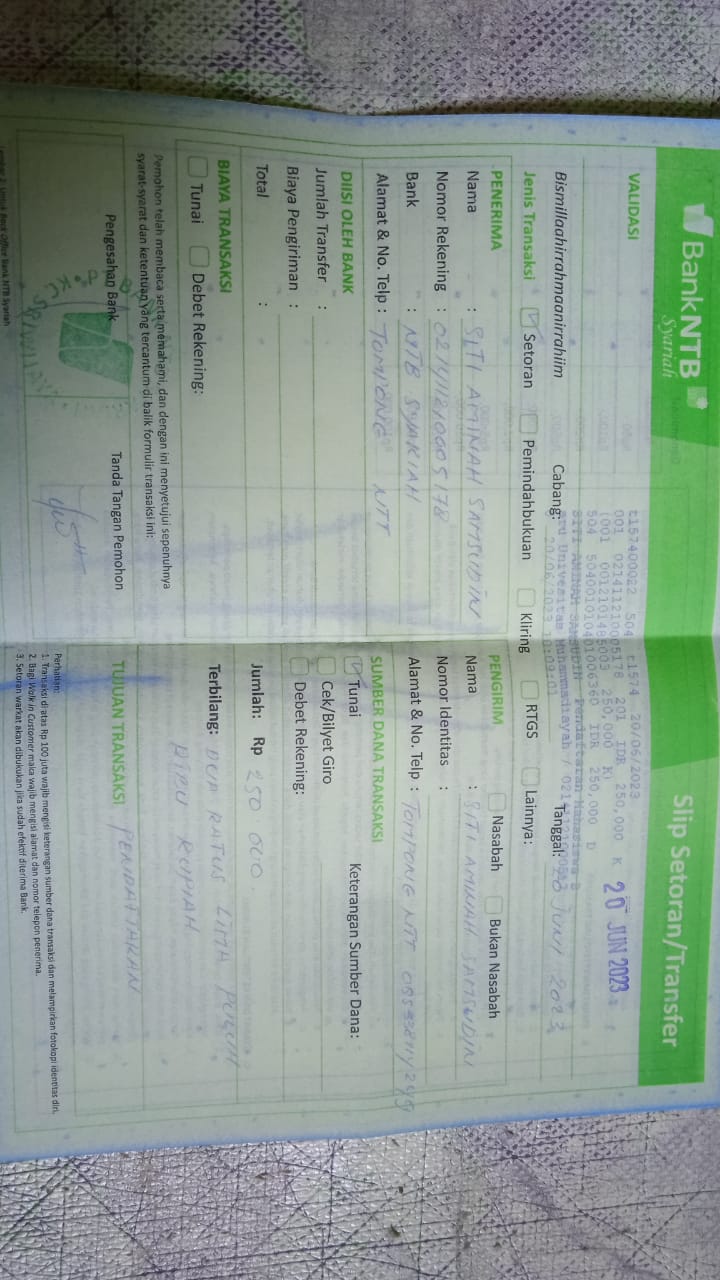 BankNTB
Syariah
Slip Setoran/Transfer
VALIDASI
t157400022 504 t1574 20/06/2023
001 021411210005178 201 IDR 250,000 K
(001 0012101485003 250,000 K)
504 5040010104010006360 IDR 250,000 D
SITI AMINAH SAMSUDIN Pendaftaran Mahasiswa B
Universitas Muhammadiayah /
20/06/2023
20 JUN 2023
Bismillaahirrahmaanirrahiim
Cabang:
Tanggal: 20 JUNI 2023
Jenis Transaksi Setoran Pemindahbukuan Kliring RTGS Lainnya:
PENERIMA
Nama : SITI AMINAH SAMSUDIN
Nomor Rekening : 021411210005178
Bank : NTB SYARIAH
Alamat & No. Telp : TOMPONG NTT
PENGIRIM Nasabah Bukan Nasabah
Nama : SITI AMINAH SAMSUDIN
Nomor Identitas :
Alamat & No. Telp : TOMPONG NTT
DIISI OLEH BANK
Jumlah Transfer :
Biaya Pengiriman :
Total :
SUMBER DANA TRANSAKSI
Tunai Keterangan Sumber Dana:
Cek/Bilyet Giro
Debet Rekening:
BIAYA TRANSAKSI
Tunai Debet Rekening:
Jumlah: Rp 250 000.
Terbilang: DUA RATUS LIMA PULUH
RIBU RUPIAH
Pemohon telah membaca serta memahami, dan dengan ini menyetujui sepenuhnya
syarat-syarat dan ketentuan yang tercantum di balik formulir transaksi ini:
Pengesahan Bank
Tanda Tangan Pemohon
TUJUAN TRANSAKSI
PENDAFTARAN
Perhatian:
1. Transaksi di atas Rp 100 juta wajib mengisi keterangan sumber dana transaksi dan melampirkan fotokopi identitas diri.
2. Bagi Walk in Customer maka wajib mengisi alamat dan nomor telepon penerima.
3. Setoran warkat akan dibukukan jika sudah efektif diterima Bank.
Lembar 2: Untuk Back Office Bank NTB Syariah